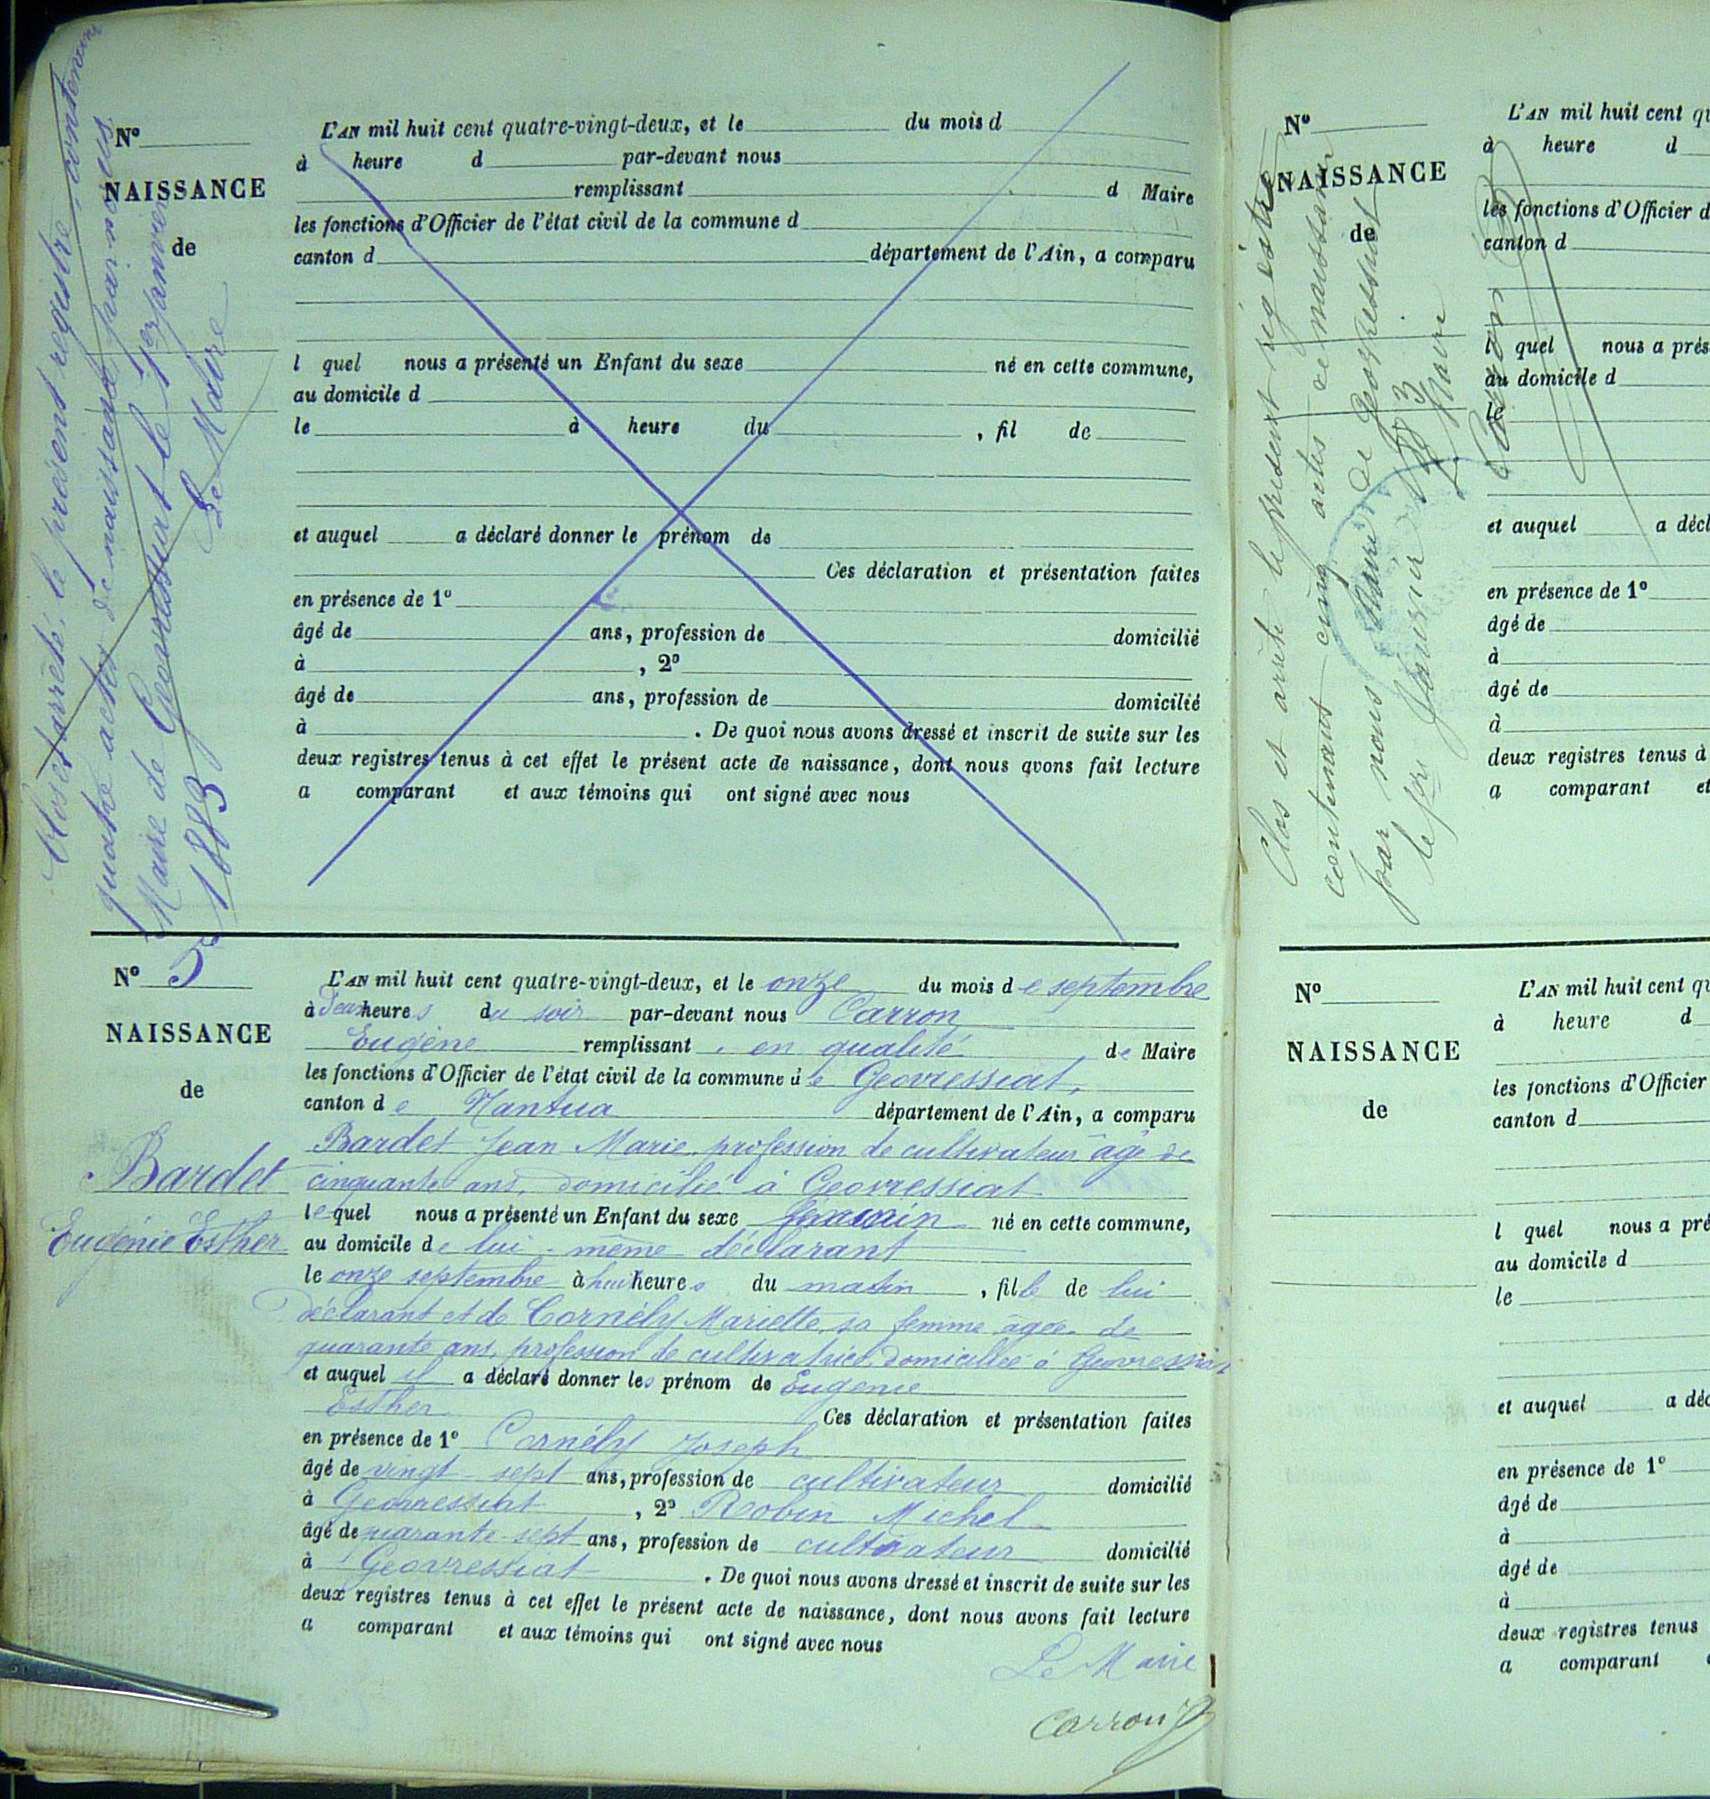 Clos et arrêté, le présent registre, contenant
quatre actes de naissance par nous
Maire de Geovressiat le 1er janvier
1883
Le Maire
No
NAISSANCE
de
L'AN mil huit cent quatre-vingt-deux, et le du mois d
à heure d par-devant nous
remplissant d Maire
les fonctions d'Officier de l'état civil de la commune d
canton d département de l'Ain, a comparu
l quel nous a présenté un Enfant du sexe né en cette commune,
au domicile d
le à heure du , fil de
et auquel a déclaré donner le prénom de
Ces déclaration et présentation faites
en présence de 1o
âgé de ans, profession de domicilié
à , 2o
âgé de ans, profession de domicilié
à . De quoi nous avons dressé et inscrit de suite sur les
deux registres tenus à cet effet le présent acte de naissance, dont nous avons fait lecture
a comparant et aux témoins qui ont signé avec nous
No 5
NAISSANCE
de
Bardet
Eugénie Esther
L'AN mil huit cent quatre-vingt-deux, et le onze du mois de septembre
à deux heures du soir par-devant nous Carron
Eugène remplissant en qualité de Maire
les fonctions d'Officier de l'état civil de la commune de Geovressiat,
canton de Nantua département de l'Ain, a comparu
Bardet Jean Marie, profession de cultivateur âgé de
cinquante ans, domicilié à Geovressiat
lequel nous a présenté un Enfant du sexe né en cette commune,
au domicile de lui-même déclarant
le onze septembre à huit heures du matin , fille de lui
déclarant et de Cornély Mariette, sa femme âgée de
quarante ans, profession de cultivatrice, domiciliée à Geovressiat
et auquel il a déclaré donner les prénom de Eugénie
Esther Ces déclaration et présentation faites
en présence de 1o Cornély Joseph
âgé de vingt-sept ans, profession de cultivateur domicilié
à Geovressiat , 2o Robin Michel
âgé de quarante-sept ans, profession de cultivateur domicilié
à Geovressiat . De quoi nous avons dressé et inscrit de suite sur les
deux registres tenus à cet effet le présent acte de naissance, dont nous avons fait lecture
a comparant et aux témoins qui ont signé avec nous
Le Maire
Carron
Clos et arrêté le présent registre
contenant cinq actes de naissance
par nous Maire de Geovressiat
le 1er Janvier 1883
Le Maire
Carron
No
NAISSANCE
de
L'AN mil huit cent qu
à heure d
les fonctions d'Officier d
canton d
l quel nous a prés
au domicile d
le
et auquel a décl
en présence de 1o
âgé de
à
âgé de
à
deux registres tenus à
a comparant et
No
NAISSANCE
de
L'AN mil huit cent qu
à heure d
les fonctions d'Officier
canton d
l quel nous a pré
au domicile d
le
et auquel a déc
en présence de 1o
âgé de
à
âgé de
à
deux registres tenus
a comparant